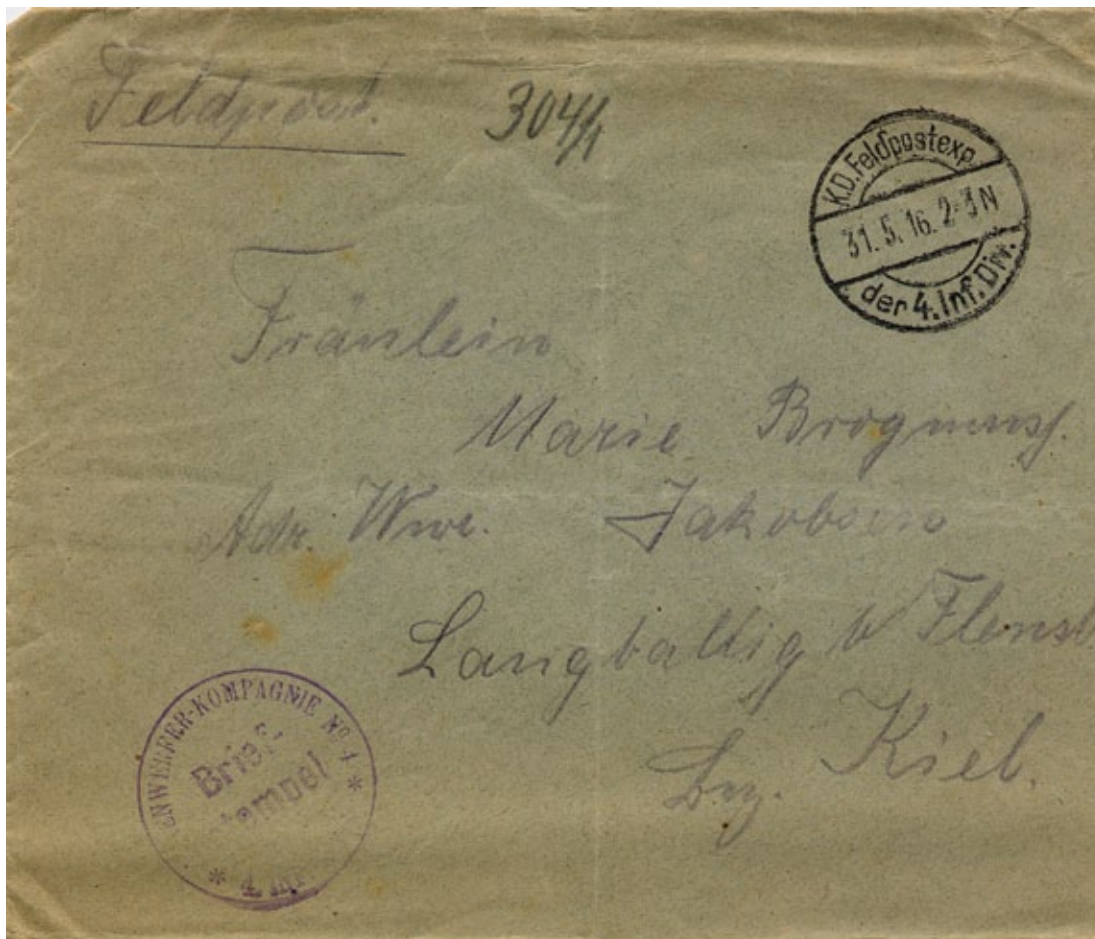 Feldpost.
304/1
K.D.Feldpostexp.
31.5.16. 2-3N
der 4.Inf.Div.
Fräulein
Marie
Adr. Wwe. Jakobsen
Langballig b Flensb
Bez. Kiel.
ENWERFER-KOMPAGNIE No. 4
Brief
stempel
4. INF